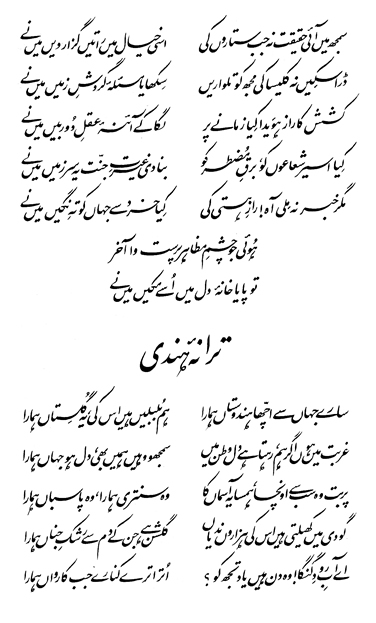 سمجھ میں آئی حقیقت نہ جب ستاروں کی اسی خیال میں راتیں گزار دیں میں نے
ڈرا سکیں نہ کلیسا کی مجھ کو تلواریں سکھایا مسئلۂ گردشِ زمیں میں نے
کشش کا راز ہویدا کیا زمانے پر لگا کے آئنۂ عقلِ دُور بیں میں نے
کیا اسیر شعاعوں کو، برقِ مُضطر کو بنا دی غیرتِ جنّت یہ سرزمیں میں نے
مگر خبر نہ ملی آہ! رازِ ہستی کی کیا خرد سے جہاں کو تہِ نگیں میں نے
ہُوئی جو چشمِ مظاہر پرست وا آخر
تو پایا خانۂ دل میں اُسے مکیں میں نے
ترانۂ ہندی
سارے جہاں سے اچھا ہندوستاں ہمارا ہم بُلبلیں ہیں اس کی، یہ گُلِستاں ہمارا
غربت میں ہوں اگر ہم، رہتا ہے دل وطن میں سمجھو وہیں ہمیں بھی، دل ہو جہاں ہمارا
پربت وہ سب سے اونچا، ہمسایہ آسماں کا وہ سنتری ہمارا، وہ پاسباں ہمارا
گودی میں کھیلتی ہیں اس کی ہزاروں ندیاں گلشن ہے جن کے دم سے رشکِ جناں ہمارا
اے آبِ رودِ گنگا! وہ دن ہیں یاد تجھ کو؟ اُترا ترے کنارے جب کارواں ہمارا